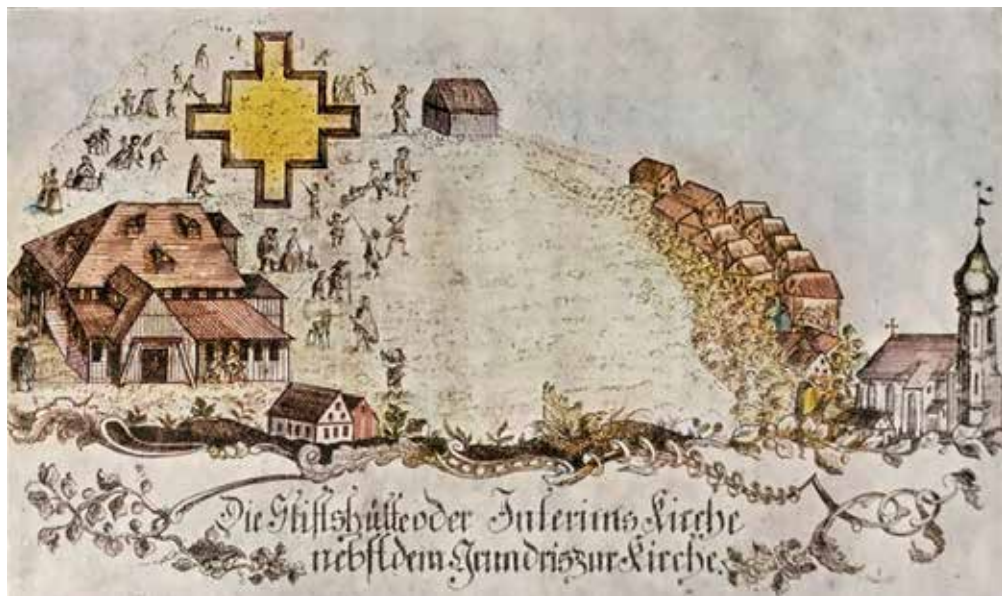 Die Stiftshütte oder Interims Kirche
nebst dem Grundris zur Kirche.